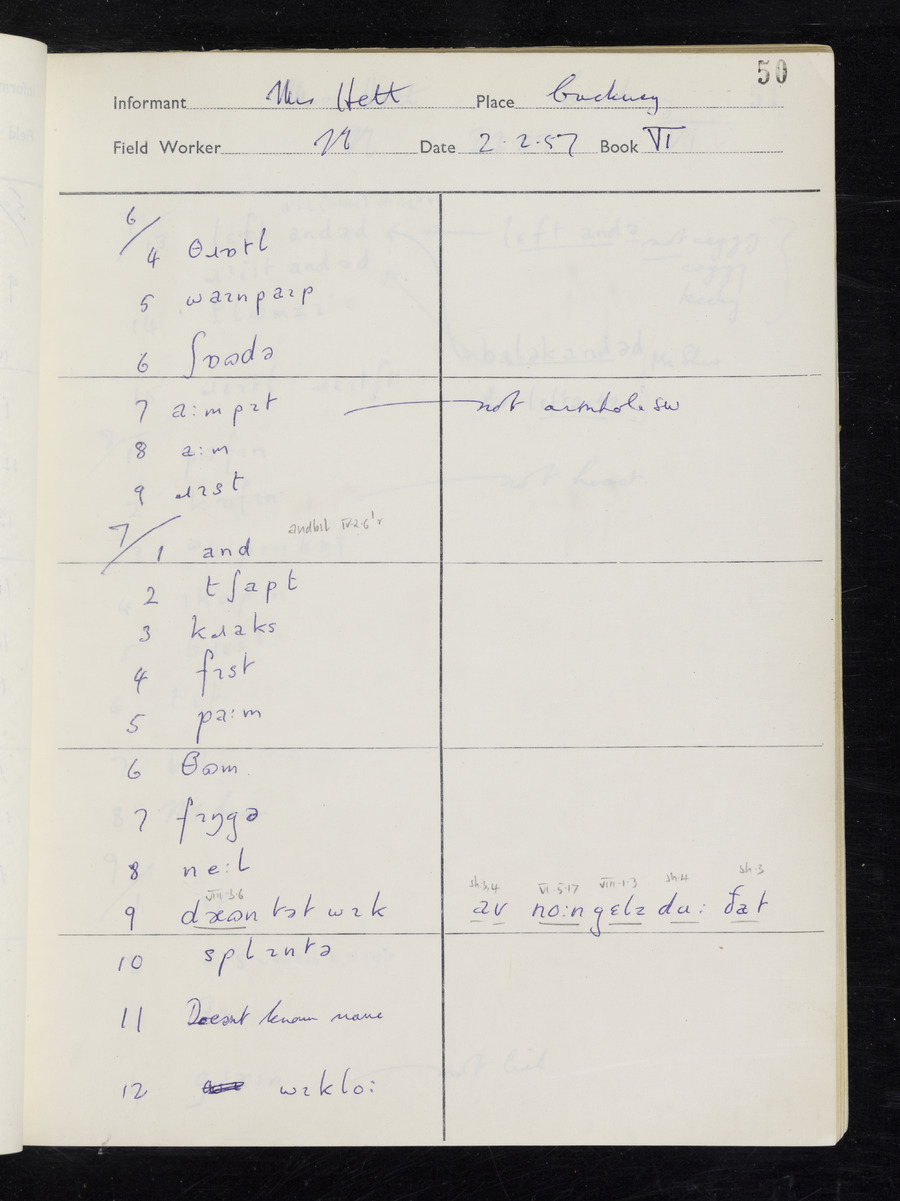 50
Informant Mrs Hett Place Cuckney
Field Worker Date 2.2.57 Book VI
6/
4 θɹɒtl
5 waɪnpaɪp
6 ʃɒʊdə
7 a:mpɪt not armhole sw
8 a:m
9 ɹɪst
7/ andbɪl IV.2.6
1 and
2 tʃapt
3 kɹaks
4 fɪst
5 pa:m
6 θʊm
7 fɪŋgə
8 ne:l
VIII.3.6 sh.3,4 VI.5.17 VIII.1.3 sh.4 sh.3
9 tət wɪk av no:n gɛlz du: ðat
10 splɪntə
11 Doesnt know name
12 wɪklo: